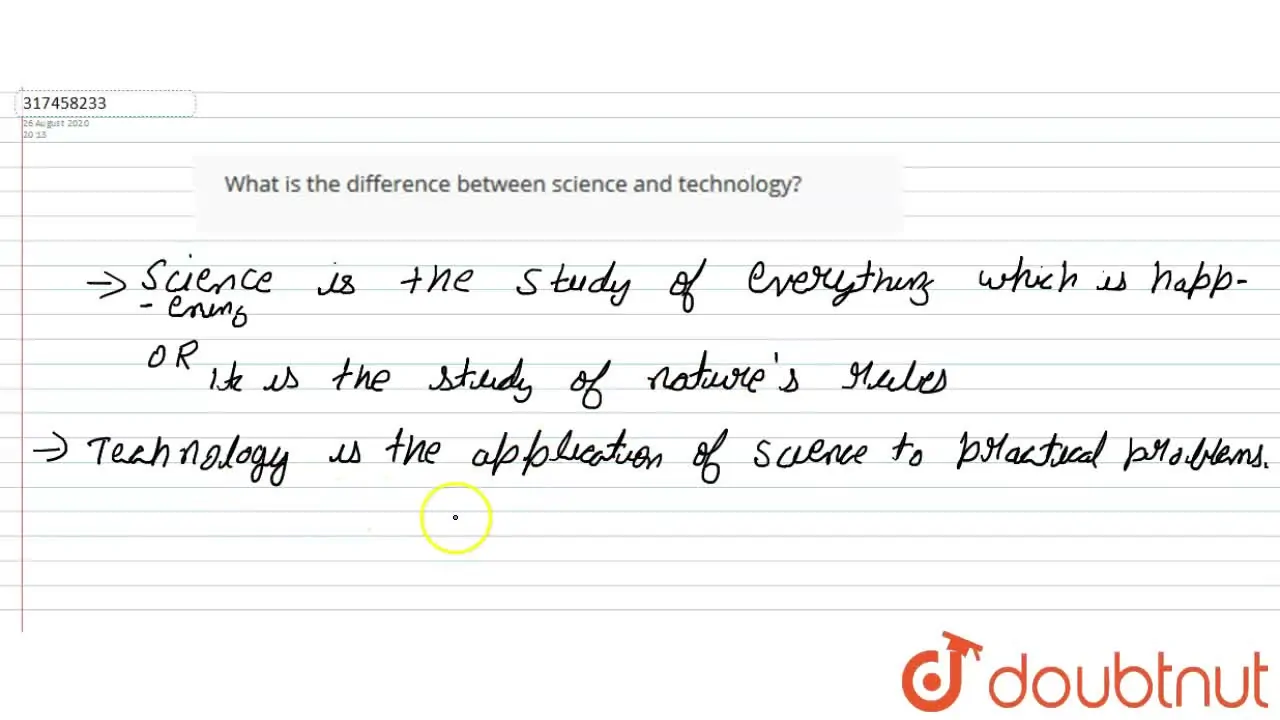 317458233
26 August 2020
20:13
What is the difference between science and technology?
→ Science is the study of everything which is happ-
- ening
OR
It is the study of nature's rules
→ Technology is the application of science to practical problems.
doubtnut